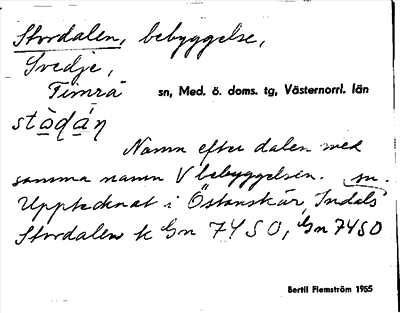 Stordalen, bebyggelse,
Svedje,
Timrå sn, Med. ö. doms. tg, Västernorrl. län
stòdá̱n
Namn efter dalen med
samma namn V bebyggelsen.
Upptecknat i Östanskär, Indals sn.
Stordalen k Gn 74 SO, Gn 74 SO
Bertil Flemström 1955